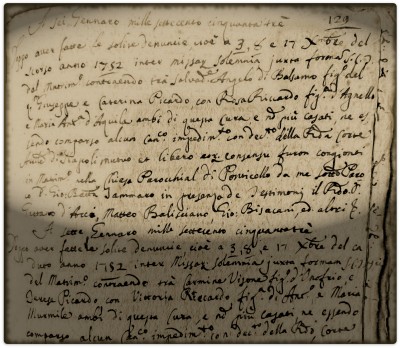 A sei Gennaro mille settecento cinquanta trè 129
Dopo aver fatte le solite denuncie cioè a 3, 8 e 17 Xbre del
scorso anno 1752 inter missar. solemnia juxta formam S.C.T.
del Matrim.o contraendo trà Salvad.e Angelo di Balsamo fig.o del
Giuseppe e Caterina Picardo con Rosa Riccardo fig.a d'Agnello
e Maria Ant.a d'Aquila ambi di questa Cura, e nè più casati, ne es
sendo comparso alcun can.co impedim.to con dec.to della R.da Corte
Arciv. di Napoli mutuo et libero eor. consensu furon congionti
in Matrim.o nella Chiesa Parochial di Ponticello da me sotto Paro
e D. Gio: Batta Jammaro in presenza de Testimonj il R.do D.
d'Arco, Matteo Balisciano, Gio: Bisacani, ed altri
A sette Gennaro mille settecento cinquanta trè
Dopo aver fatte le solite denuncie cioè a 3, 8, e 17 Xbre del ca
duto anno 1752 inter Missar. Solemnia juxta formam S.C.T.
del Matrim.o contraendo trà Carmine Visone fig.o d'Onofrio e
Teresa Picardo con Vittoria Riccardo fig.a di Ant.o e Maria
Murmile ambi di questa Cura e nè più casati ne essendo
comparso alcun can.co impedim.to con dec.to della R.da Corte